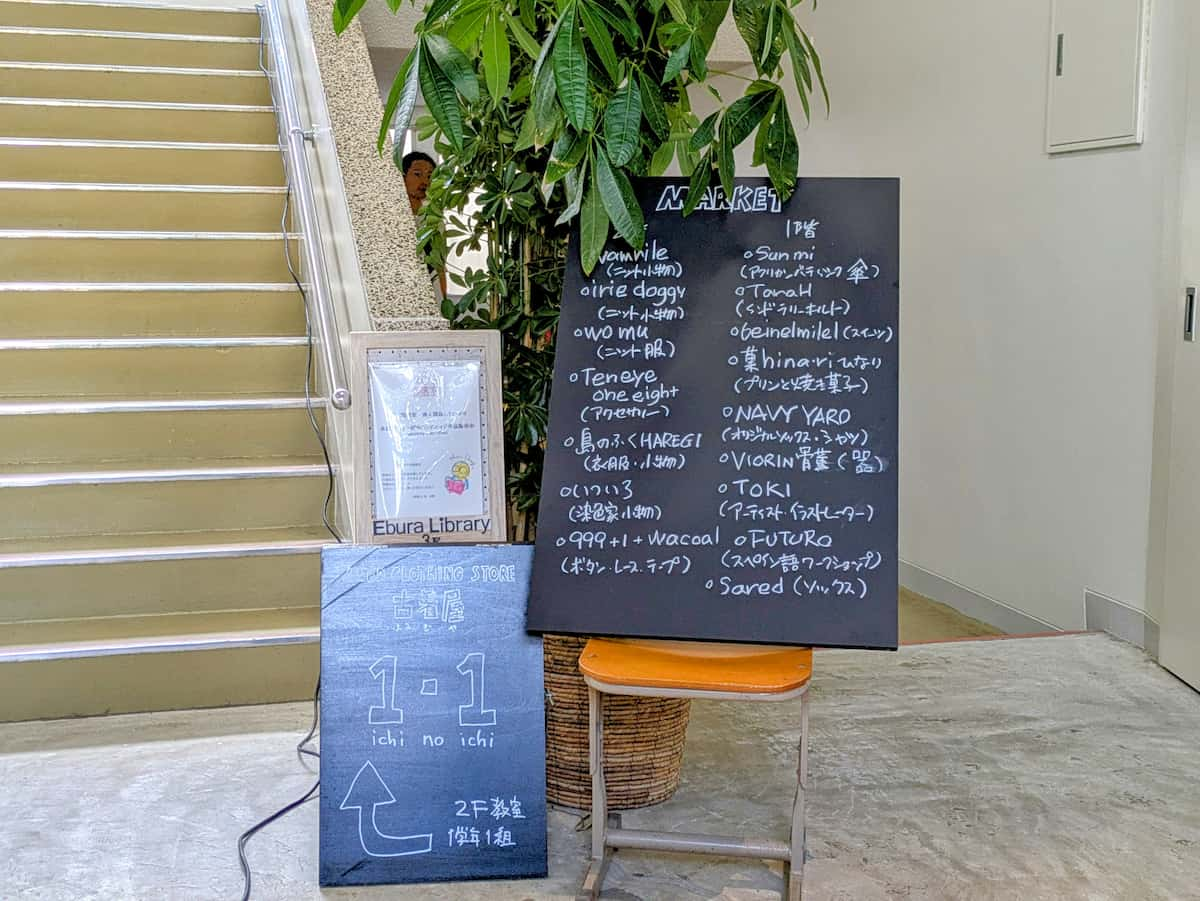 MARKET
1階
(ニット小物)
irie doggy
(ニット小物)
womu
(ニット服)
Teneye
one eight
(アクセサリー)
島のふくHAREGI
(衣服・小物)
いついろ
(染色家小物)
999+1+wacoal
(ボタン・レース・テープ)
Sunmi
(アフリカンバティック傘)
TanaH
(インドラリーキルト)
菓hinariひなり
(プリンと焼き菓子)
NAVY YARD
(オリジナルソックス・シャツ)
VIORIN骨董(器)
TOKI
(アーティスト・イラストレーター)
FUTURO
(スペイン語ワークショップ)
Sared(ソックス)
Ebura Library
CLOTHING STORE
古着屋
1・1
ichi no ichi
2F教室
1学年1組